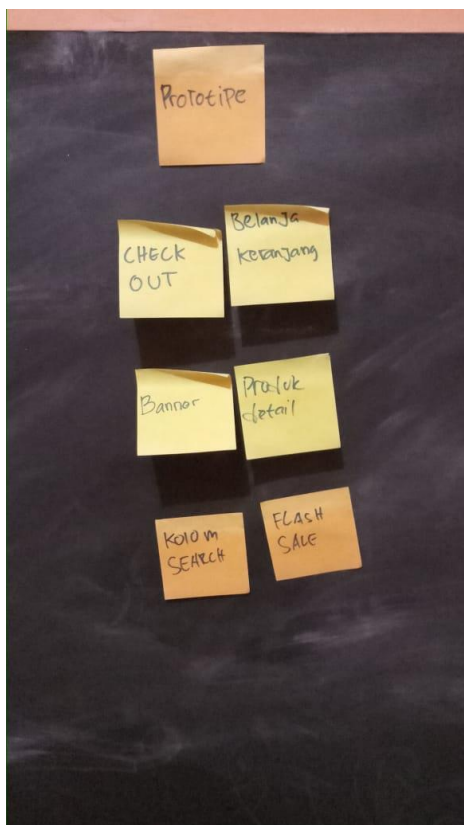 Prototipe
CHECK
OUT
Belanja
keranjang
Banner
Produk
detail
Kolom
SEARCH
FLASH
SALE